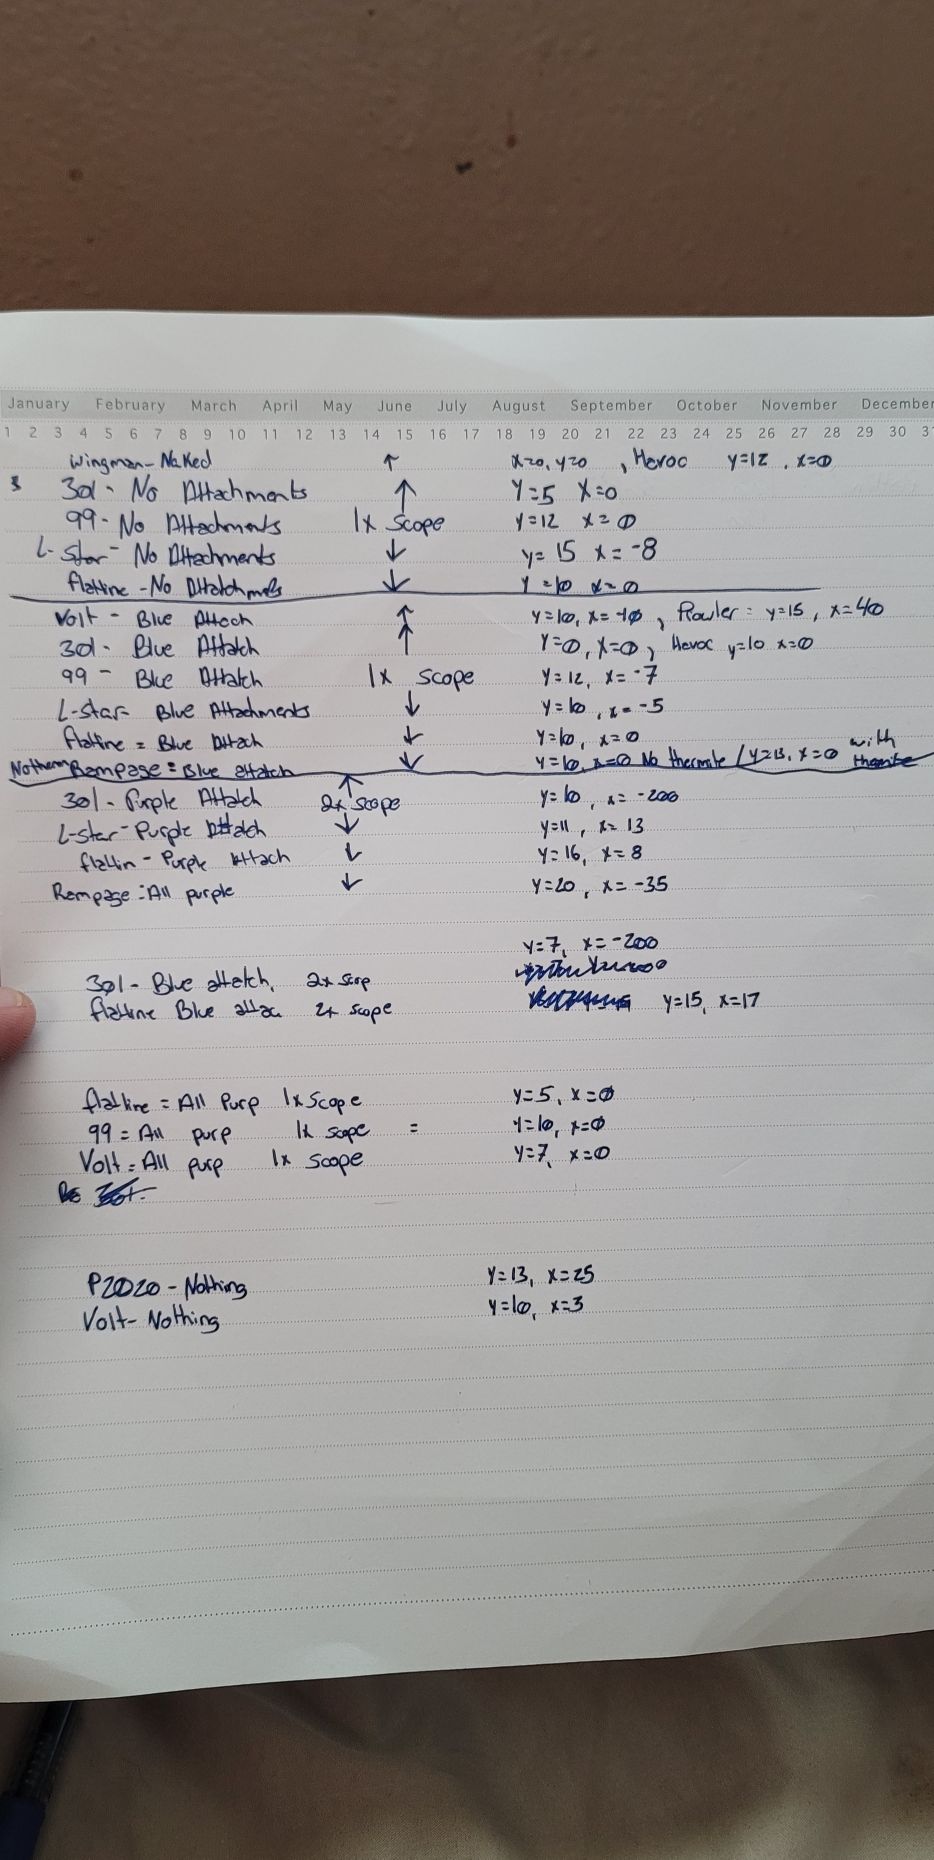 January February March April May June July August September October November December
1 2 3 4 5 6 7 8 9 10 11 12 13 14 15 16 17 18 19 20 21 22 23 24 25 26 27 28 29 30 3
Wingman - Naked ↑ x=0, y=0 , Havoc y=12 , x=0
301 - No Attachments ↑ Y=5 X=0
99 - No Attachments 1x Scope y=12 x=0
L-Star - No Attachments ↓ y=15 x=-8
flatline - No Attachments ↓ Y=10 x=0
Volt - Blue Attach ↑ y=10, x=-10 , Prowler = y=15, x=40
301 - Blue Attatch ↑ Y=0, X=0, Havoc y=10 x=0
99 - Blue Attatch 1x Scope y=12, x=-7
L-Star - Blue Attachments ↓ y=10, x=-5
flatline = Blue Attach ↓ y=10, x=0
Rampage = Blue attatch ↓ y=10, x=0 No thermite / y=13, x=0 with thermite
301 - Purple Attatch ↑ 2x scope y=10, x=-200
L-Star - Purple Attatch ↓ y=11, x=13
flatlin - Purple Attach ↓ y=16, x=8
Rampage = All purple ↓ y=20, x=-35
y=7, x=-200
301 - Blue attatch, 2x scop
flatline Blue attac 2x scope y=15, x=17
flatline = All Purp 1x Scope y=5, x=0
99 = All purp 1x scope = y=10, x=0
Volt = All purp 1x scope y=7, x=0
P2020 - Nothing y=13, x=25
Volt - Nothing y=10, x=3